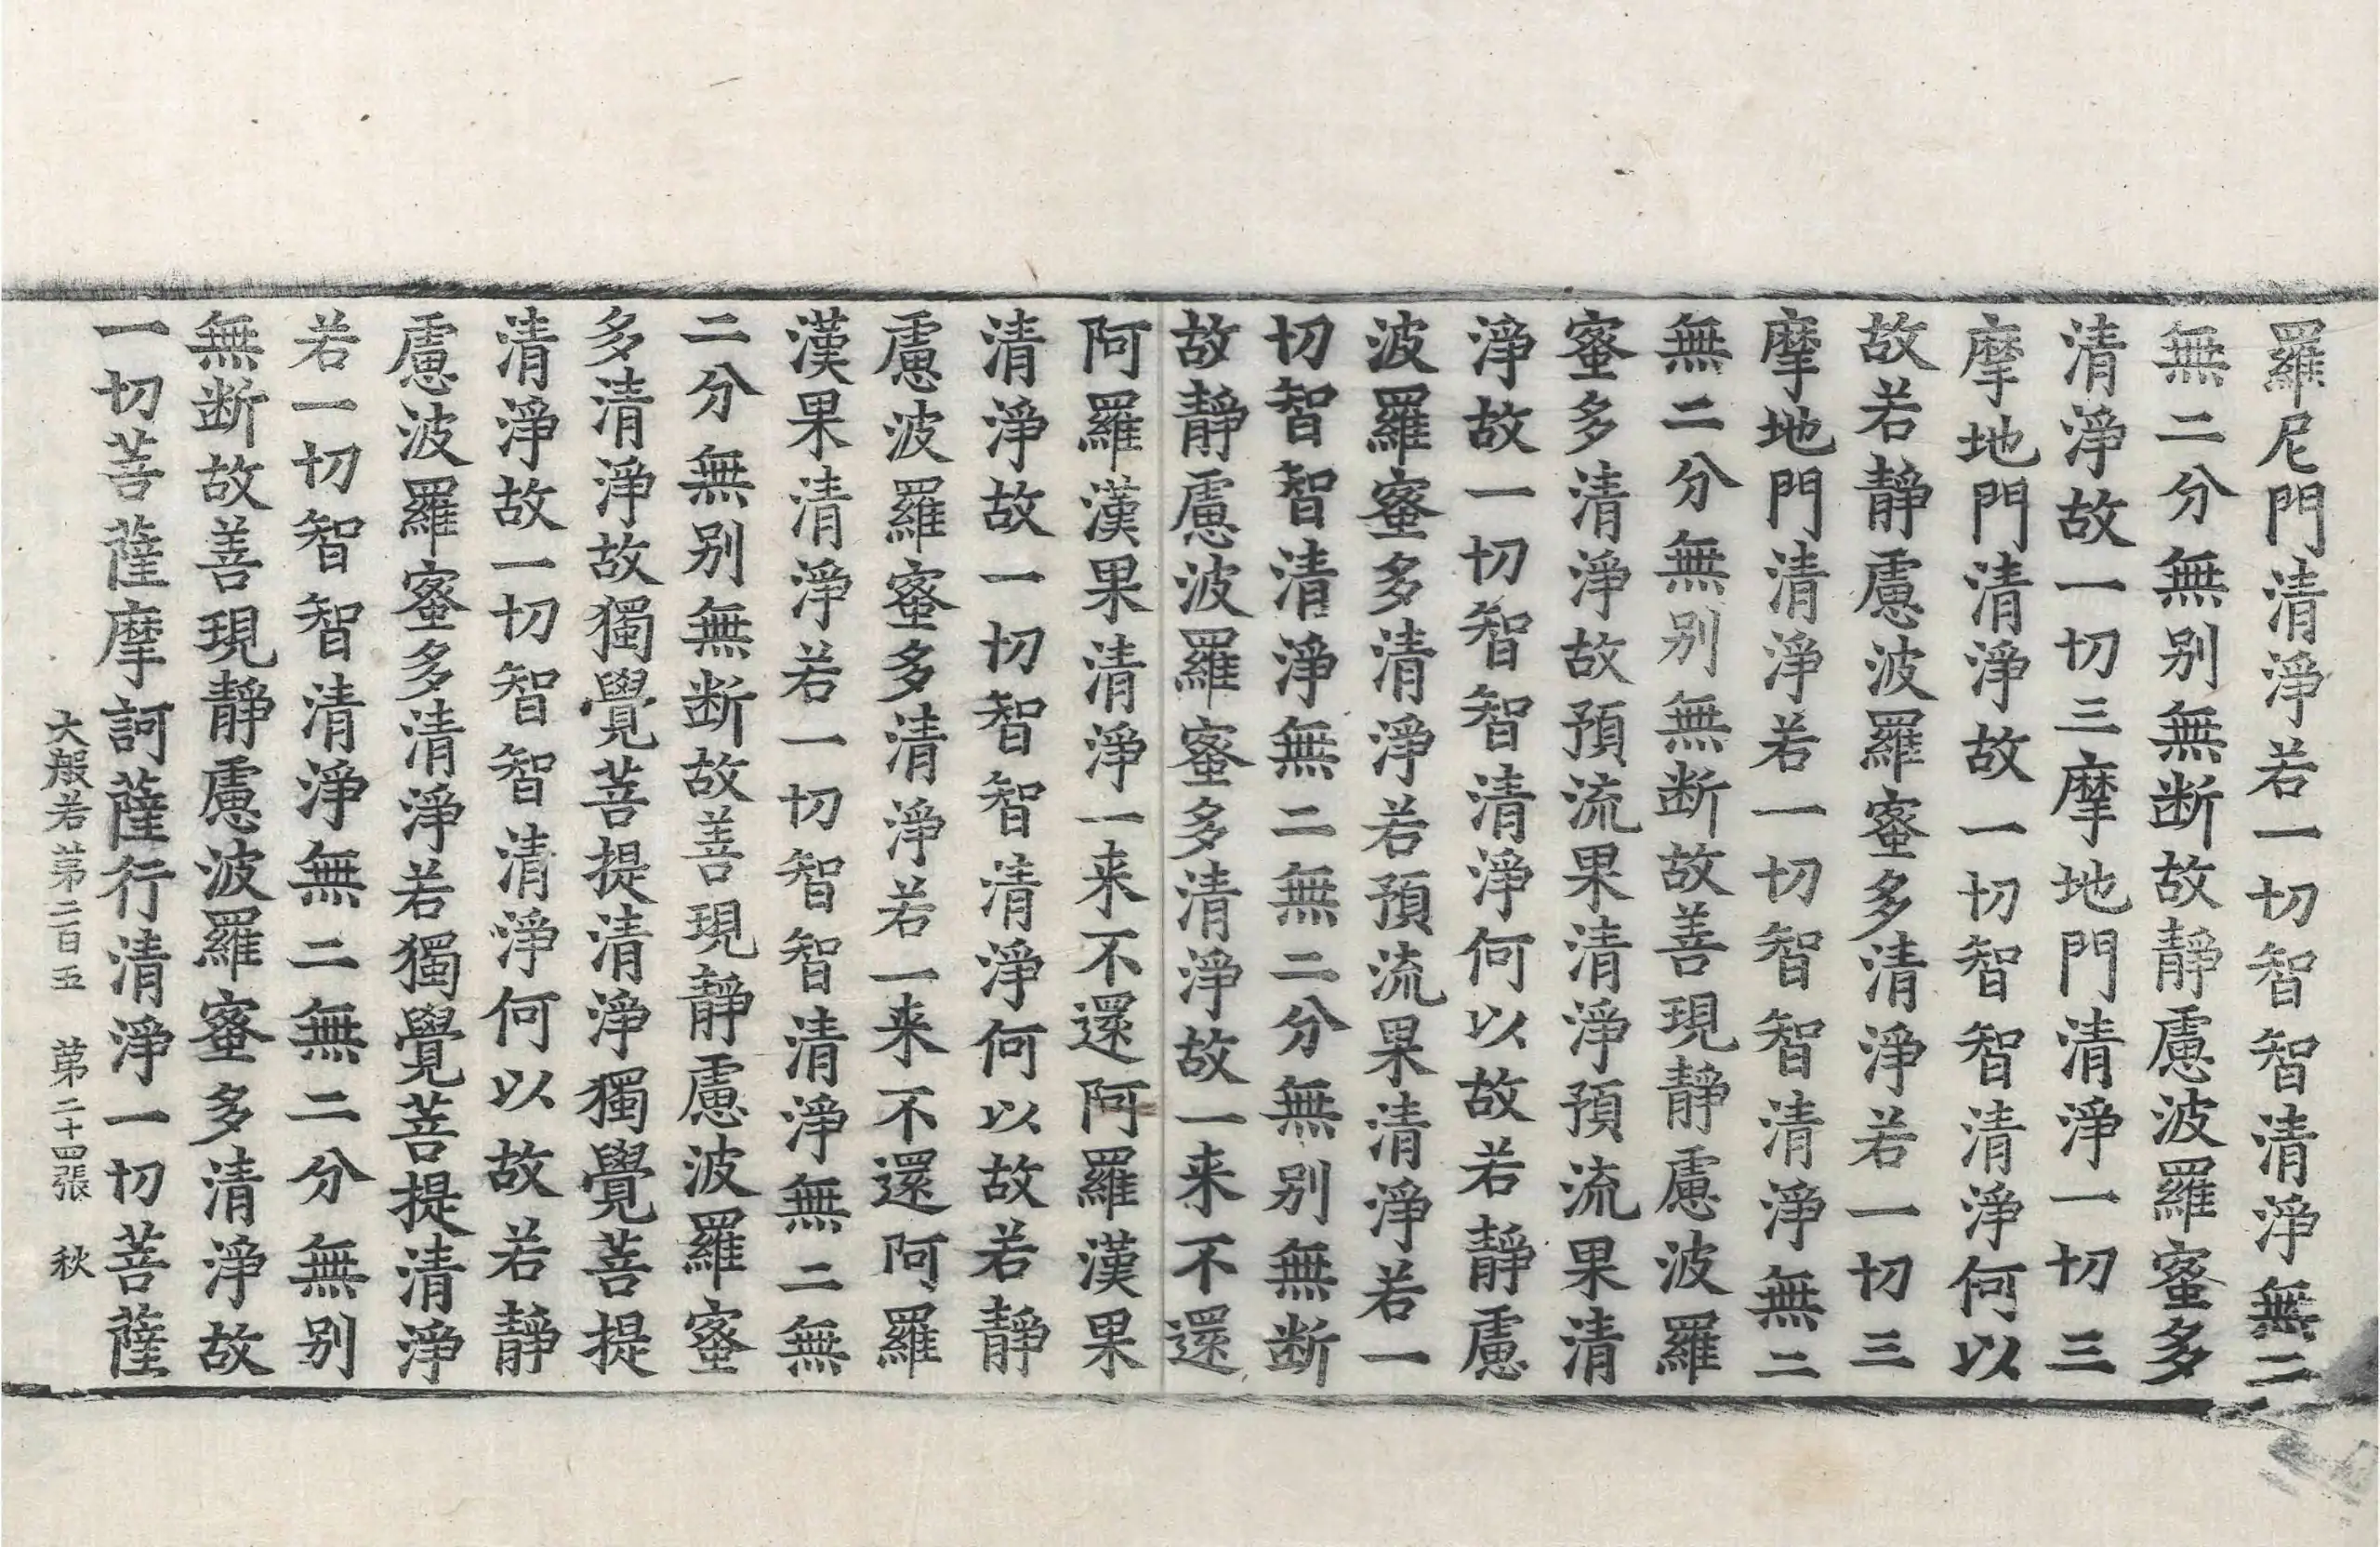 羅尼門清淨若一切智智清淨無二
無二分無别無断故靜慮波羅蜜多
清淨故一切三摩地門清淨一切三
摩地門清淨故一切智智清淨何以
故若靜慮波羅蜜多清淨若一切三
摩地門清淨若一切智智清淨無二
無二分無别無断故善現靜慮波羅
蜜多清淨故預流果清淨預流果清
淨故一切智智清淨何以故若靜慮
波羅蜜多清淨若預流果清淨若一
切智智清淨無二無二分無别無断
故靜慮波羅蜜多清淨故一来不還
阿羅漢果清淨一来不還阿羅漢果
清淨故一切智智清淨何以故若靜
慮波羅蜜多清淨若一来不還阿羅
漢果清淨若一切智智清淨無二無
二分無别無断故善現靜慮波羅蜜
多清淨故獨覺菩提清淨獨覺菩提
清淨故一切智智清淨何以故若靜
慮波羅蜜多清淨若獨覺菩提清淨
若一切智智清淨無二無二分無别
無断故善現靜慮波羅蜜多清淨故
一切菩薩摩訶薩行清淨一切菩薩
大般若第二百五　第二十四張　秋